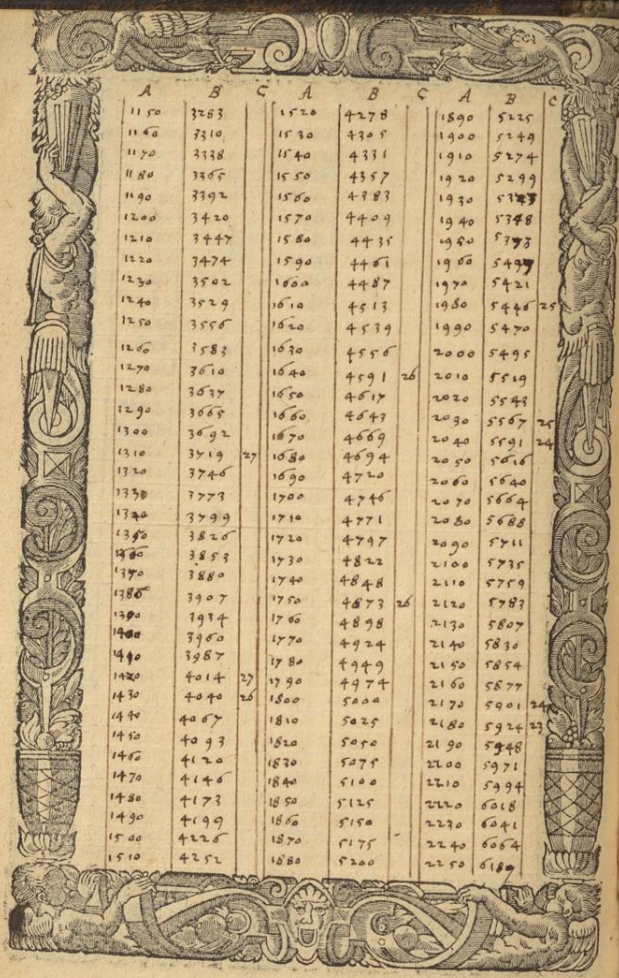 A B C A B C A B C
1150 3283 1520 4278 1890 5225
1160 3310 1530 4305 1900 5249
1170 3338 1540 4331 1910 5274
1180 3365 1550 4357 1920 5299
1190 3392 1560 4383 1930 5323
1200 3420 1570 4409 1940 5348
1210 3447 1580 4435 1950 5373
1220 3474 1590 4461 1960 5497
1230 3502 1600 4487 1970 5421
1240 3529 1610 4513 1980 5446 25
1250 3556 1620 4539 1990 5470
1260 3583 1630 4556 2000 5495
1270 3610 1640 4591 26 2010 5519
1280 3637 1650 4617 2020 5543
1290 3665 1660 4643 2030 5567 25
1300 3692 1670 4669 2040 5591 24
1310 3719 27 1680 4694 2050 5616
1320 3746 1690 4720 2060 5640
1330 3773 1700 4746 2070 5664
1340 3799 1710 4771 2080 5688
1350 3826 1720 4797 2090 5711
1360 3853 1730 4822 2100 5735
1370 3880 1740 4848 2110 5759
1380 3907 1750 4873 26 2120 5783
1390 3934 1760 4898 2130 5807
1400 3960 1770 4924 2140 5830
1410 3987 1780 4949 2150 5854
1420 4014 27 1790 4974 2160 5877
1430 4040 26 1800 5000 2170 5901 24
1440 4067 1810 5025 2180 5924 23
1450 4093 1820 5050 2190 5948
1460 4120 1830 5075 2200 5971
1470 4146 1840 5100 2210 5994
1480 4173 1850 5125 2220 6018
1490 4199 1860 5150 2230 6041
1500 4226 1870 5175 2240 6064
1510 4252 1880 5200 2250